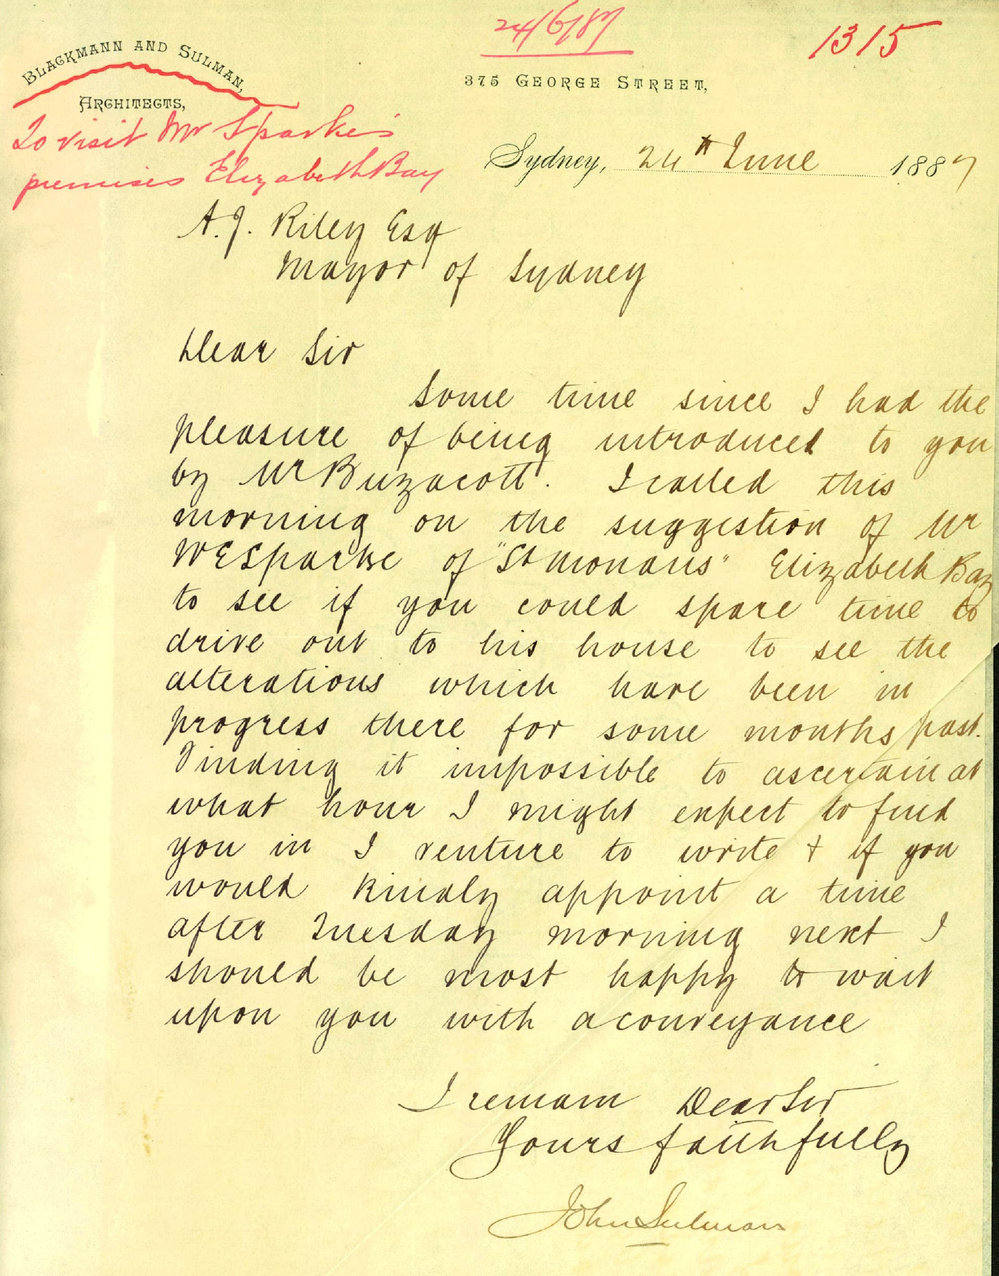 24/6/87
1315
BLACKMANN AND SULMAN,
ARCHITECTS,
375 GEORGE STREET,
To visit Mr Sparke's
premises Elizabeth Bay
Sydney, 24th June 1887
A.J. Riley Esq
Mayor of Sydney
Dear Sir
Some time since I had the
pleasure of being introduced to you
by Mr Buzacott. I called this
morning on the suggestion of Mr
W E Sparke of "St Monans" Elizabeth Bay
to see if you could spare time to
drive out to his house to see the
alterations which have been in
progress there for some months past.
Finding it impossible to ascertain at
what hour I might expect to find
you in I venture to write & if you
would kindly appoint a time
after Tuesday morning next I
should be most happy to wait
upon you with a conveyance
I remain Dear Sir
Yours faithfully
John Sulman